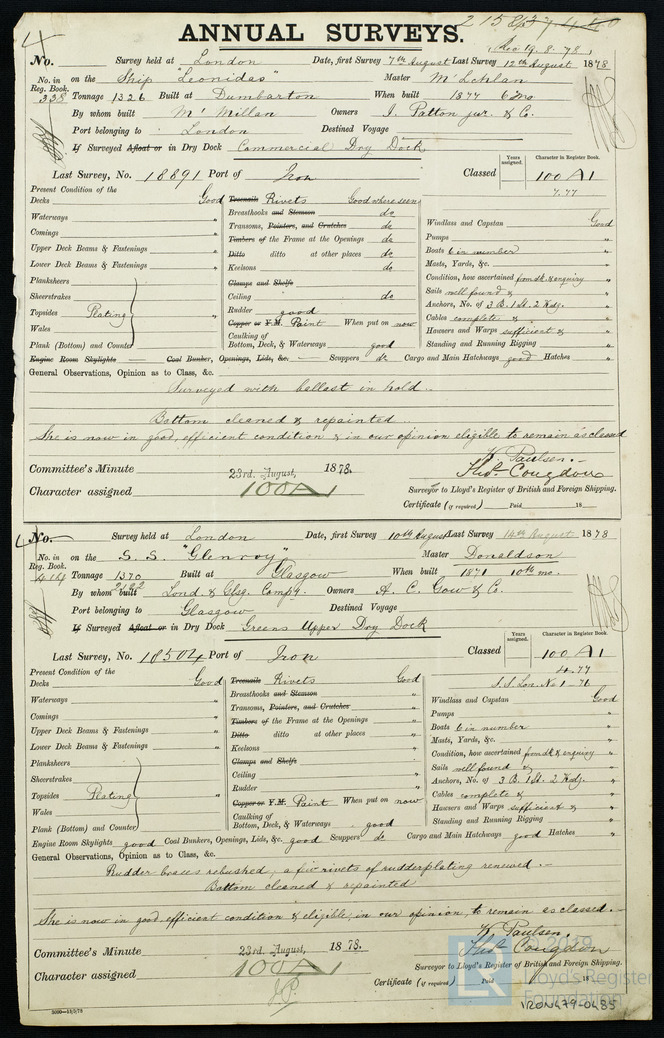 4
ANNUAL SURVEYS.
Rec 19.8.78
No. Survey held at London Date, first Survey 7th August Last Survey 12th August 1878
No. in on the Ship "Leonidas" Master McLchlan
Reg. Book.
338 Tonnage 1326 Built at Dumbarton When built 1877 6 mo
By whom built Mc Millan Owners J. Patton jur. & Co.
Port belonging to London Destined Voyage
If Surveyed Afloat or in Dry Dock Commercial Dry Dock
Last Survey, No. 18891 Port of Iron Classed
Years assigned.
Character in Register Book.
100 A1
7.77
Present Condition of the
Decks Good
Waterways "
Comings "
Upper Deck Beams & Fastenings "
Lower Deck Beams & Fastenings "
Planksheers
Sheerstrakes
Topsides Plating "
Wales
Plank (Bottom) and Counter
Treenails Rivets Good where seen
Breasthooks and Stemson do
Transoms, Pointers, and Crutches do
Timbers of the Frame at the Openings do
Ditto ditto at other places do
Keelsons do
Clamps and Shelfs
Ceiling do
Rudder good
Copper or Y.M. Paint When put on now
Caulking of
Bottom, Deck, & Waterways good
Windlass and Capstan Good
Pumps "
Boats 6 in number "
Masts, Yards, &c. "
Condition, how ascertained from dk & enquiry
Sails well found & "
Anchors, No. of 3 B. 1 St. 2 Kdg.
Cables complete & "
Hawsers and Warps sufficient & "
Standing and Running Rigging "
Engine Room Skylights — Coal Bunker, Openings, Lids, &c. — Scuppers do Cargo and Main Hatchways good Hatches "
General Observations, Opinion as to Class, &c.
Surveyed with ballast in hold.
Bottom cleaned & repainted.
She is now in good, efficient condition & in our opinion eligible to remain as classed
K. Paulsen.
Thos. Congdon
Committee's Minute 23rd. August, 1878.
Character assigned 100A1
Surveyor to Lloyd's Register of British and Foreign Shipping.
Certificate (if required) Paid 18
No. Survey held at London Date, first Survey 10th August Last Survey 14th August 1878
No. in on the S. S. "Glenroy" Master Donaldson
Reg. Book.
Tonnage 1370 Built at Glasgow When built 1871 10th mo.
2122
By whom built Lond. & Glsg. Compy. Owners A. C. Gow & Co.
Port belonging to Glasgow Destined Voyage
If Surveyed Afloat or in Dry Dock Greens Upper Dry Dock
Last Survey, No. 18504 Port of Iron Classed
Years assigned.
Character in Register Book.
100 A1
4.77
S.S. Lon. No 1 - 76
Present Condition of the
Decks Good
Waterways "
Comings "
Upper Deck Beams & Fastenings "
Lower Deck Beams & Fastenings "
Planksheers
Sheerstrakes
Topsides Plating "
Wales
Plank (Bottom) and Counter
Treenails Rivets Good
Breasthooks and Stemson "
Transoms, Pointers, and Crutches "
Timbers of the Frame at the Openings "
Ditto ditto at other places "
Keelsons "
Clamps and Shelfs
Ceiling "
Rudder "
Copper or Y.M. Paint When put on now
Caulking of
Bottom, Deck, & Waterways good
Windlass and Capstan Good
Pumps "
Boats 6 in number "
Masts, Yards, &c. "
Condition, how ascertained from dk & enquiry
Sails well found & "
Anchors, No. of 3 B. 1 St. 2 Kdg.
Cables complete & "
Hawsers and Warps sufficient & "
Standing and Running Rigging "
Engine Room Skylights good Coal Bunkers, Openings, Lids, &c. good Scuppers do Cargo and Main Hatchways good Hatches "
General Observations, Opinion as to Class, &c.
Rudder braces rebushed, a few rivets of rudderplating renewed.
Bottom cleaned & repainted
She is now in good efficient condition & eligible, in our opinion, to remain as classed.
K. Paulsen.
Thos. Congdon
Committee's Minute 23rd. August, 1878.
Character assigned 100A1
Surveyor to Lloyd's Register of British and Foreign Shipping.
Certificate (if required) Paid 18
LR
© 2019
Lloyd's Register
Foundation
IRON479-0485